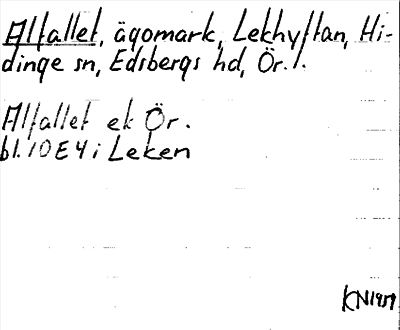 Alfallet, ägomark, Lekhyttan, Hi-
dinge sn, Edsbergs hd, Ör. l.
Alfallet ek Ör.
bl. 10E4i Leken
KN 1951